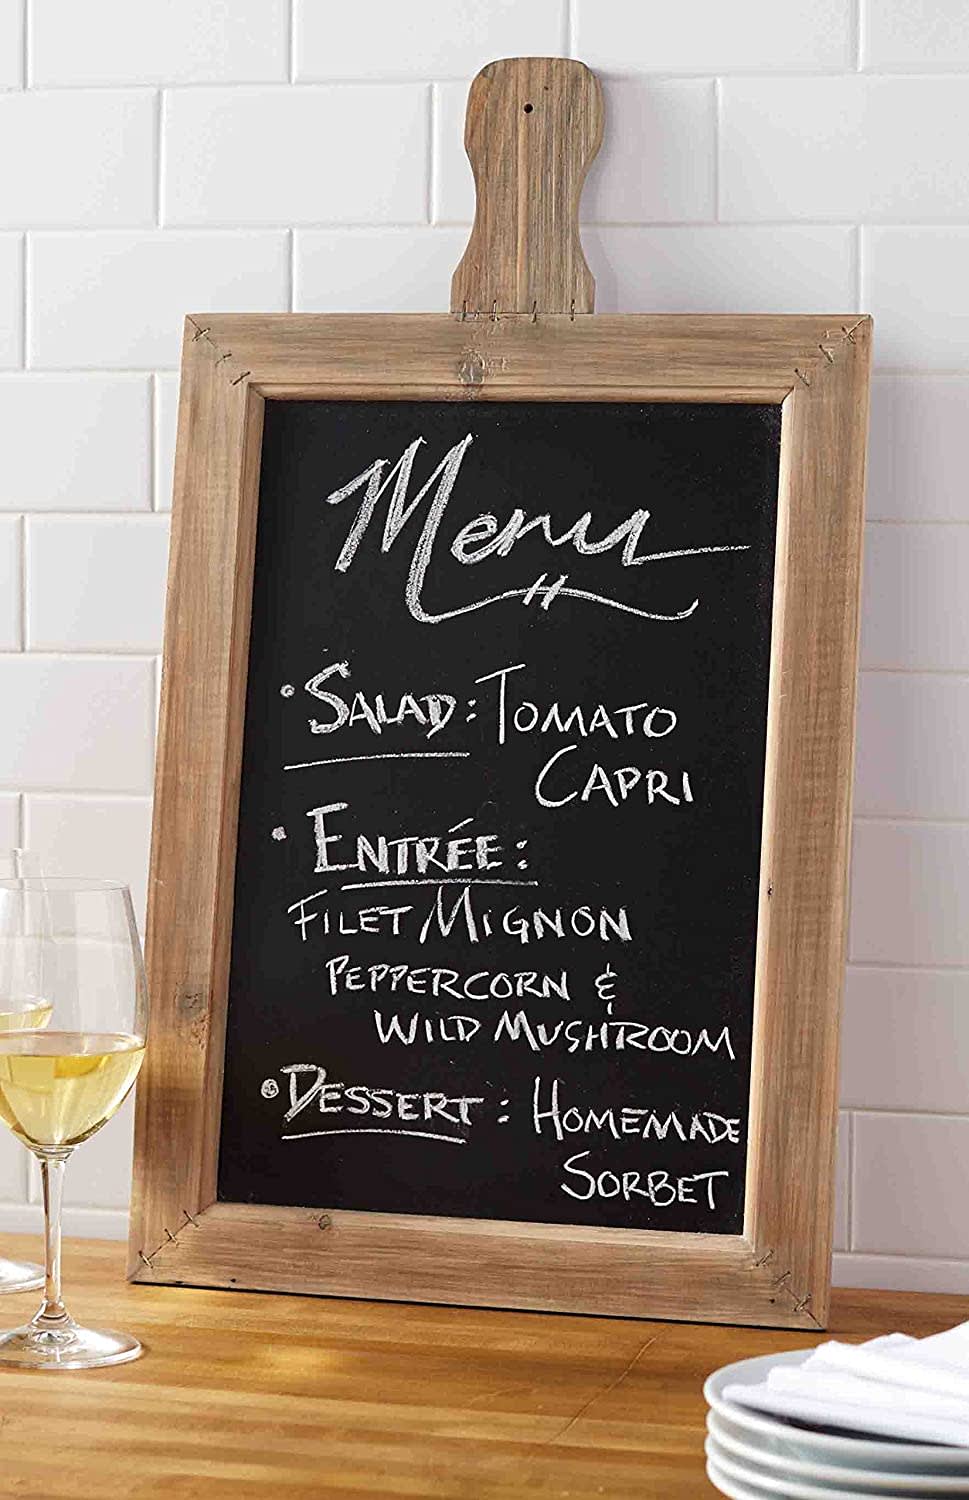 Menu
• SALAD: TOMATO
CAPRI
• ENTRÉE:
FILET MIGNON
PEPPERCORN &
WILD MUSHROOM
• DESSERT: HOMEMADE
SORBET